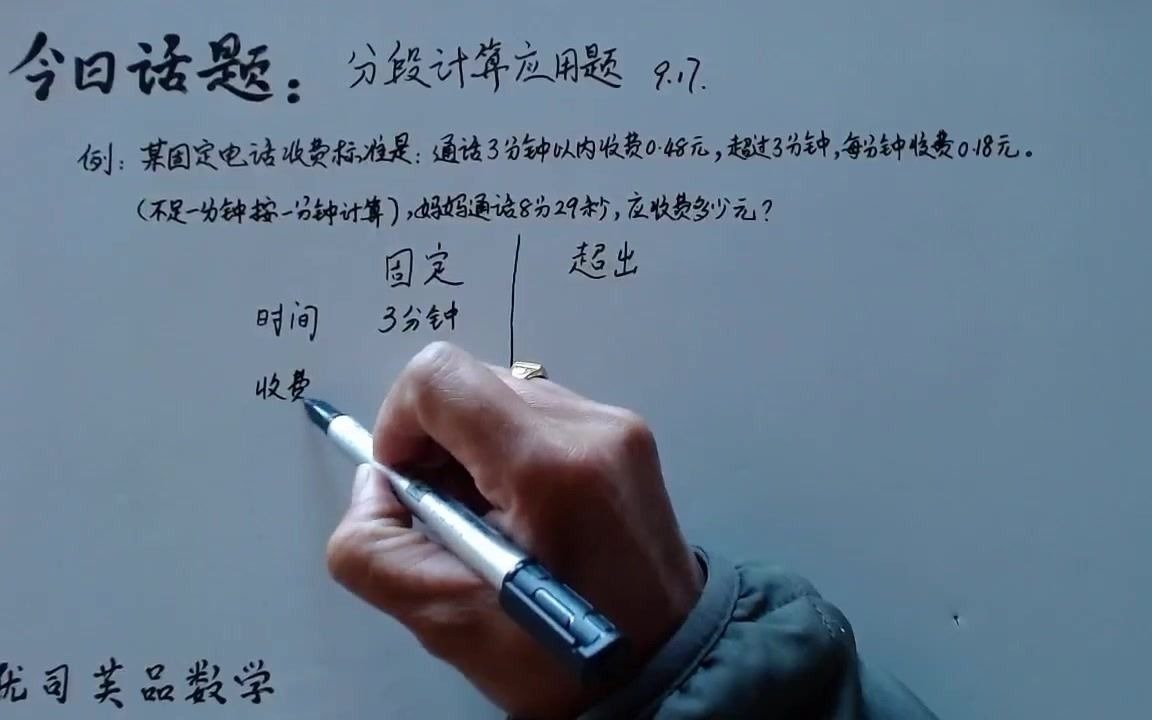 今日话题：分段计算应用题 9.17.
例：某固定电话收费标准是：通话3分钟以内收费0.48元，超过3分钟，每分钟收费0.18元。
（不足一分钟按一分钟计算），妈妈通话8分29秒，应收费多少元？
固定 超出
时间 3分钟
收费
司芙品数学